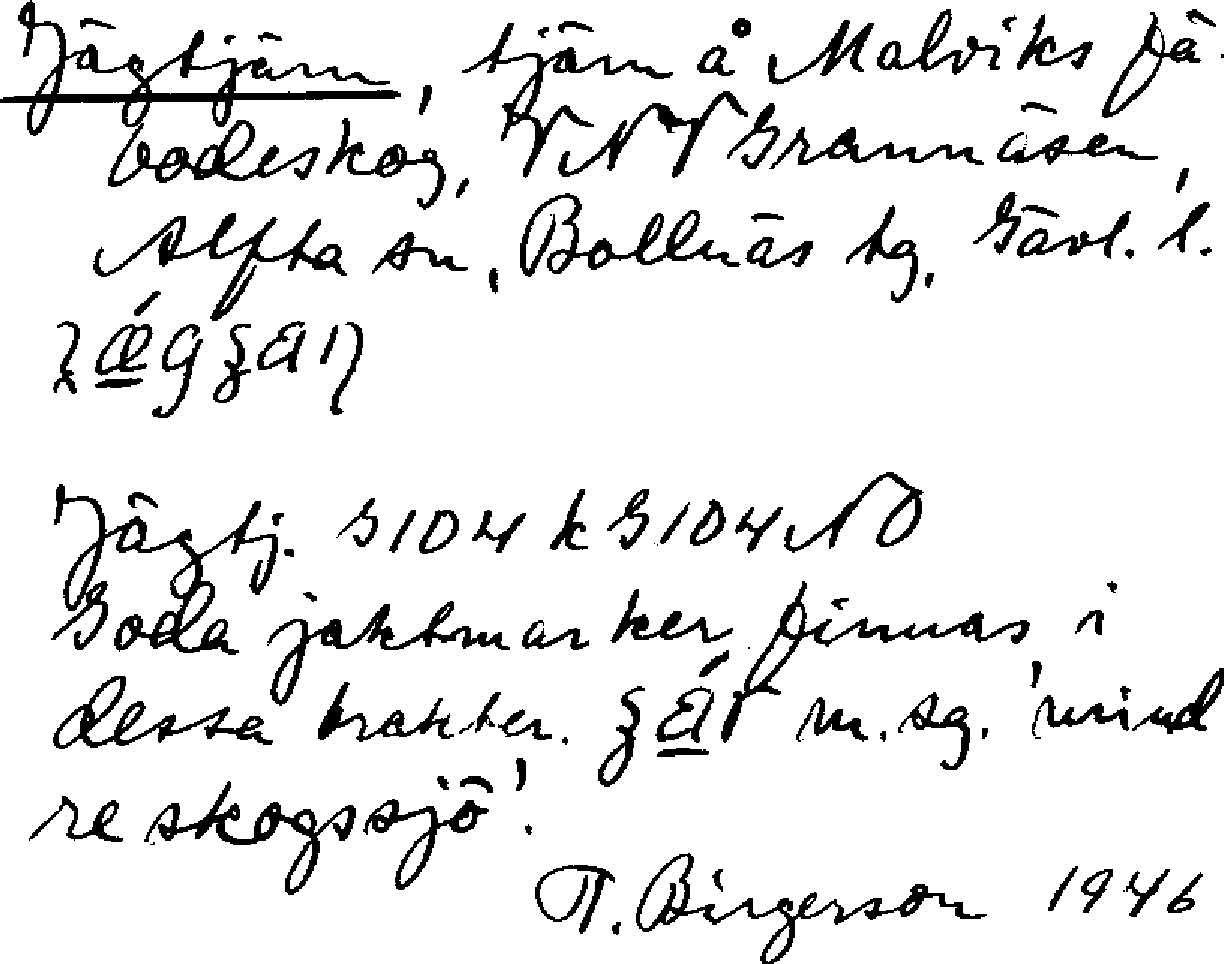 Jägtjärn, tjärn å Malviks fä-
bodeskog, VNV Grannäsen,
Alfta sn, Bollnäs tg, Gävl. l.
Jägtj. G104 k G104 NO
Goda jaktmarker finnas i
dessa trakter. m. sg. 'mind
re skogssjö'.
T. Birgerson 1946